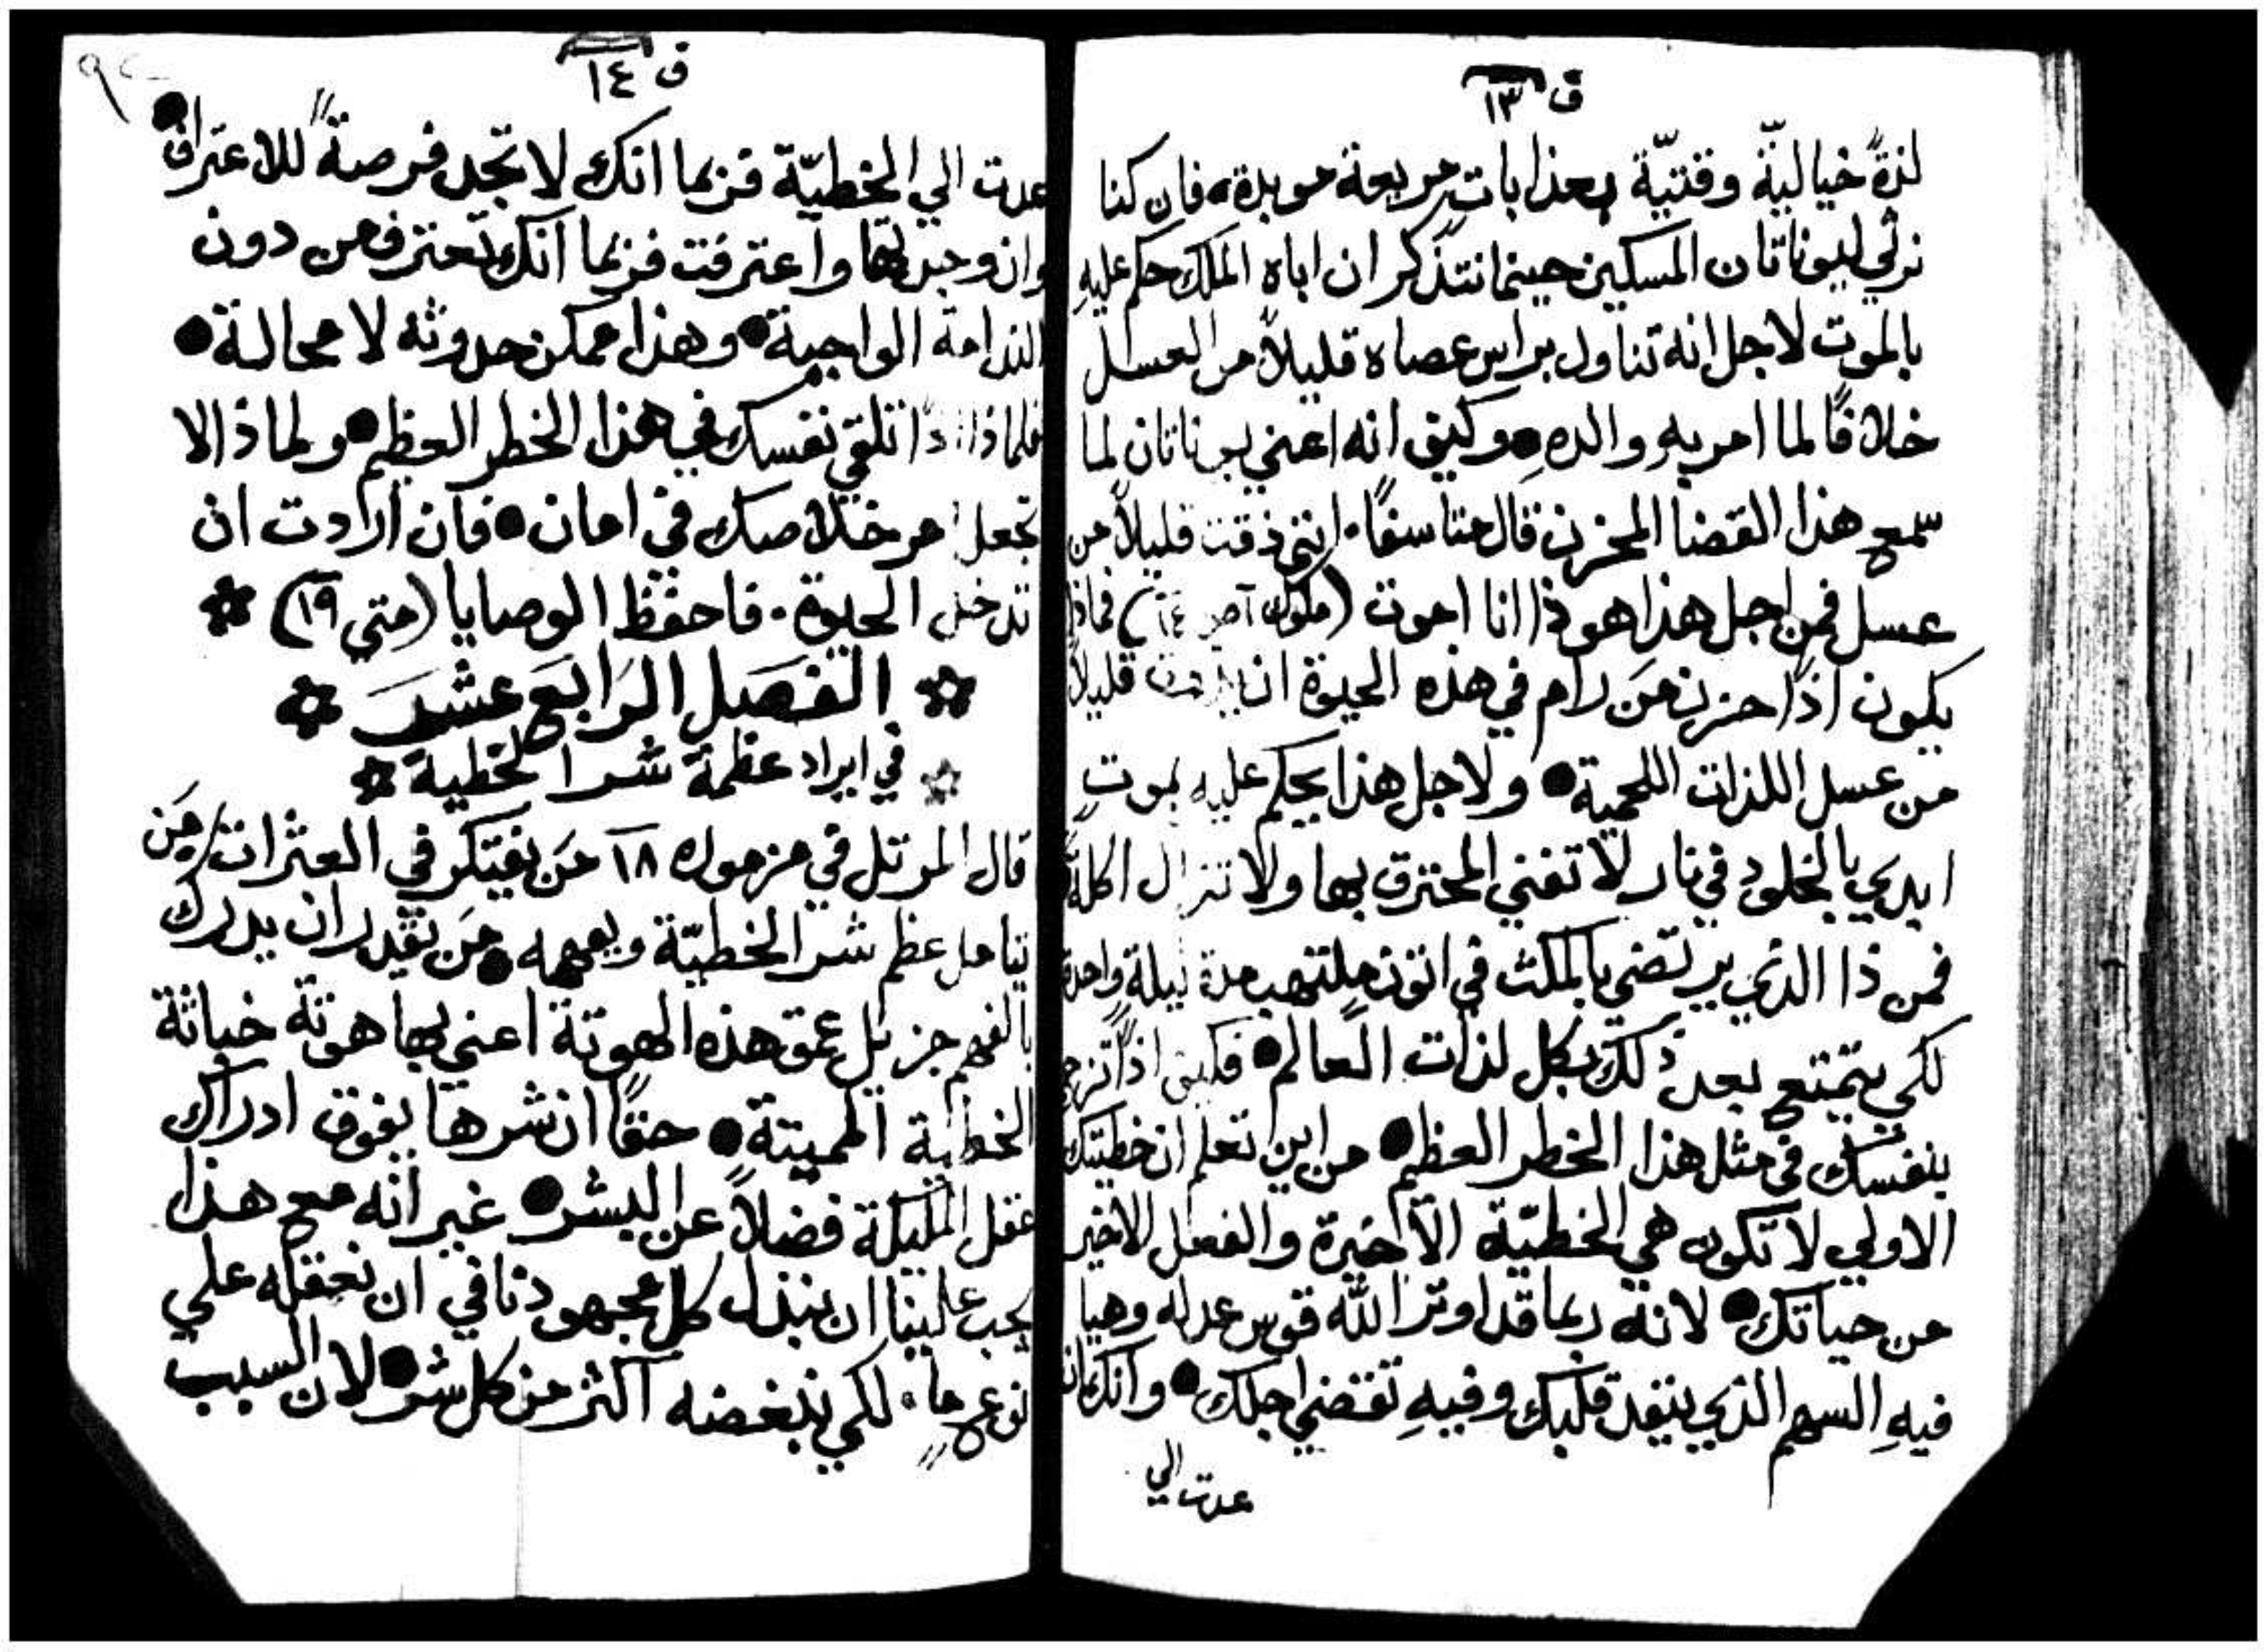 ق ١٣
لذةً خياليّة وقتيّة بعذابات مريعة موبدة، فان كنا
نرثي ليوناتان المسكين حينما نتذكر ان اباه الملك حكم عليهِ
بالموت لاجل انه تناول براس عصاه قليلاً من العسل
خلافًا لما امر بهِ والدهِ ● وكيف انه اعني يوناتان لما
سمع هذا القضا المحزن قال متاسفًا · انني ذقت قليلاً من
عسل فمن اجل هذا هوذا انا اموت (ملوك ا ص ١٤) فماذا
يكون اذًا حزن مَن رام في هذه الحيوة ان قليلاً
من عسل اللذات اللحمية ● ولاجل هذا يحكم عليهِ بموتٍ
ابدي بالخلود في نار لا تفني المحترق بها ولا تزال اكلةً
فمن ذا الذي يرتضي بالمكث في اتون ملتهب مدة ليلة واحدة
لكي يتمتع بعد ذلك بكل لذات العالم ● فكيف اذًا تزج
بنفسك في مثل هذا الخطر العظم ● من اين تعلم ان خطيتك
الاولي لا تكون هي الخطيّة الاخيرة والفصل الاخير
من حياتك ● لانه ربما قد اوتر الله قوس عدله وهيا
فيهِ السهم الذي ينفد قلبك وفيهِ تقضي اجلك ● وانك ان
عدت الي
ق ١٤
عدت الي الخطيّة فربما انك لا تجد فرصةً للاعتراف ●
وان وجدتها واعترفت فربما انك تعترف من دون
الندامة الواجبة ● وهذا ممكن حدوثه لا محالة ●
فلماذا اذًا تلقي نفسك في هذا الخطر العظم ● ولماذا لا
تجعل امر خلاصك في امان ● فان اردت ان
تدخل الحيوة · فاحفظ الوصايا (متي ١٩) ✲
✲ الفصل الرابع عشر ✲
✲ في ايراد عظمة شر الخطية ✲
قال المرتل في مزموره ١٨ مَن يفتكر في العثرات / مَن
يتامل عظم شر الخطيّة ويفهمه ● مَن يقدر ان يدرك
بالفهم جزيل عمق هذه الهوتة اعني بها هوتة خباثة
الخطية المميتة ● حقًا ان شرها يفوق ادراك
عقل المليكة فضلاً عن البشر ● غير انه مع هذا
يجب علينا ان نبذل كل مجهودنا في ان نعقله علي
نوع ما · لكي نبغضه اكثر من كل شر ● لان السبب